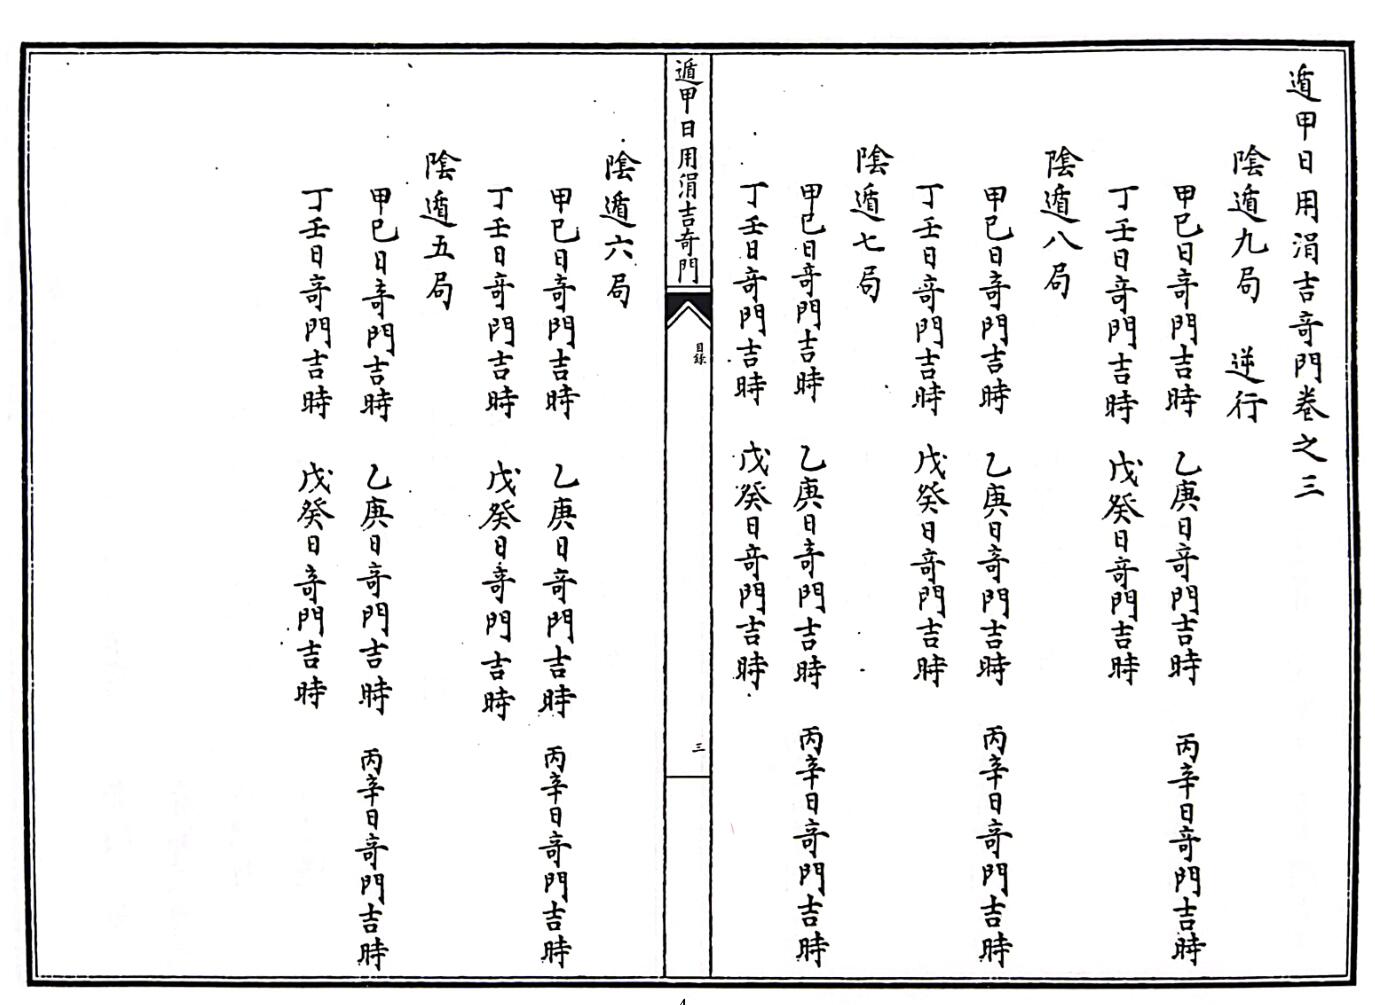 遁甲日用涓吉竒門卷之三
陰遁九局　逆行
甲巳日竒門吉時　乙庚日竒門吉時　丙辛日竒門吉時
丁壬日竒門吉時　戊癸日竒門吉時
陰遁八局
甲巳日竒門吉時　乙庚日竒門吉時　丙辛日竒門吉時
丁壬日竒門吉時　戊癸日竒門吉時
陰遁七局
甲巳日竒門吉時　乙庚日竒門吉時　丙辛日竒門吉時
丁壬日竒門吉時　戊癸日竒門吉時
遁甲日用涓吉奇門
目錄
三
陰遁六局
甲巳日竒門吉時　乙庚日竒門吉時　丙辛日竒門吉時
丁壬日竒門吉時　戊癸日竒門吉時
陰遁五局
甲巳日竒門吉時　乙庚日竒門吉時　丙辛日竒門吉時
丁壬日竒門吉時　戊癸日竒門吉時
4